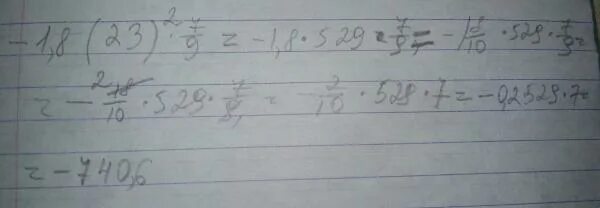 -1,8 (23)² · 7/9 = -1,8 · 529 · 7/9 = -18/10 · 529 · 7/9 =
= - 2 18/10 · 529 · 7/9, = - 2/10 · 529 · 7 = -0,2 529 · 7 =
= -740,6